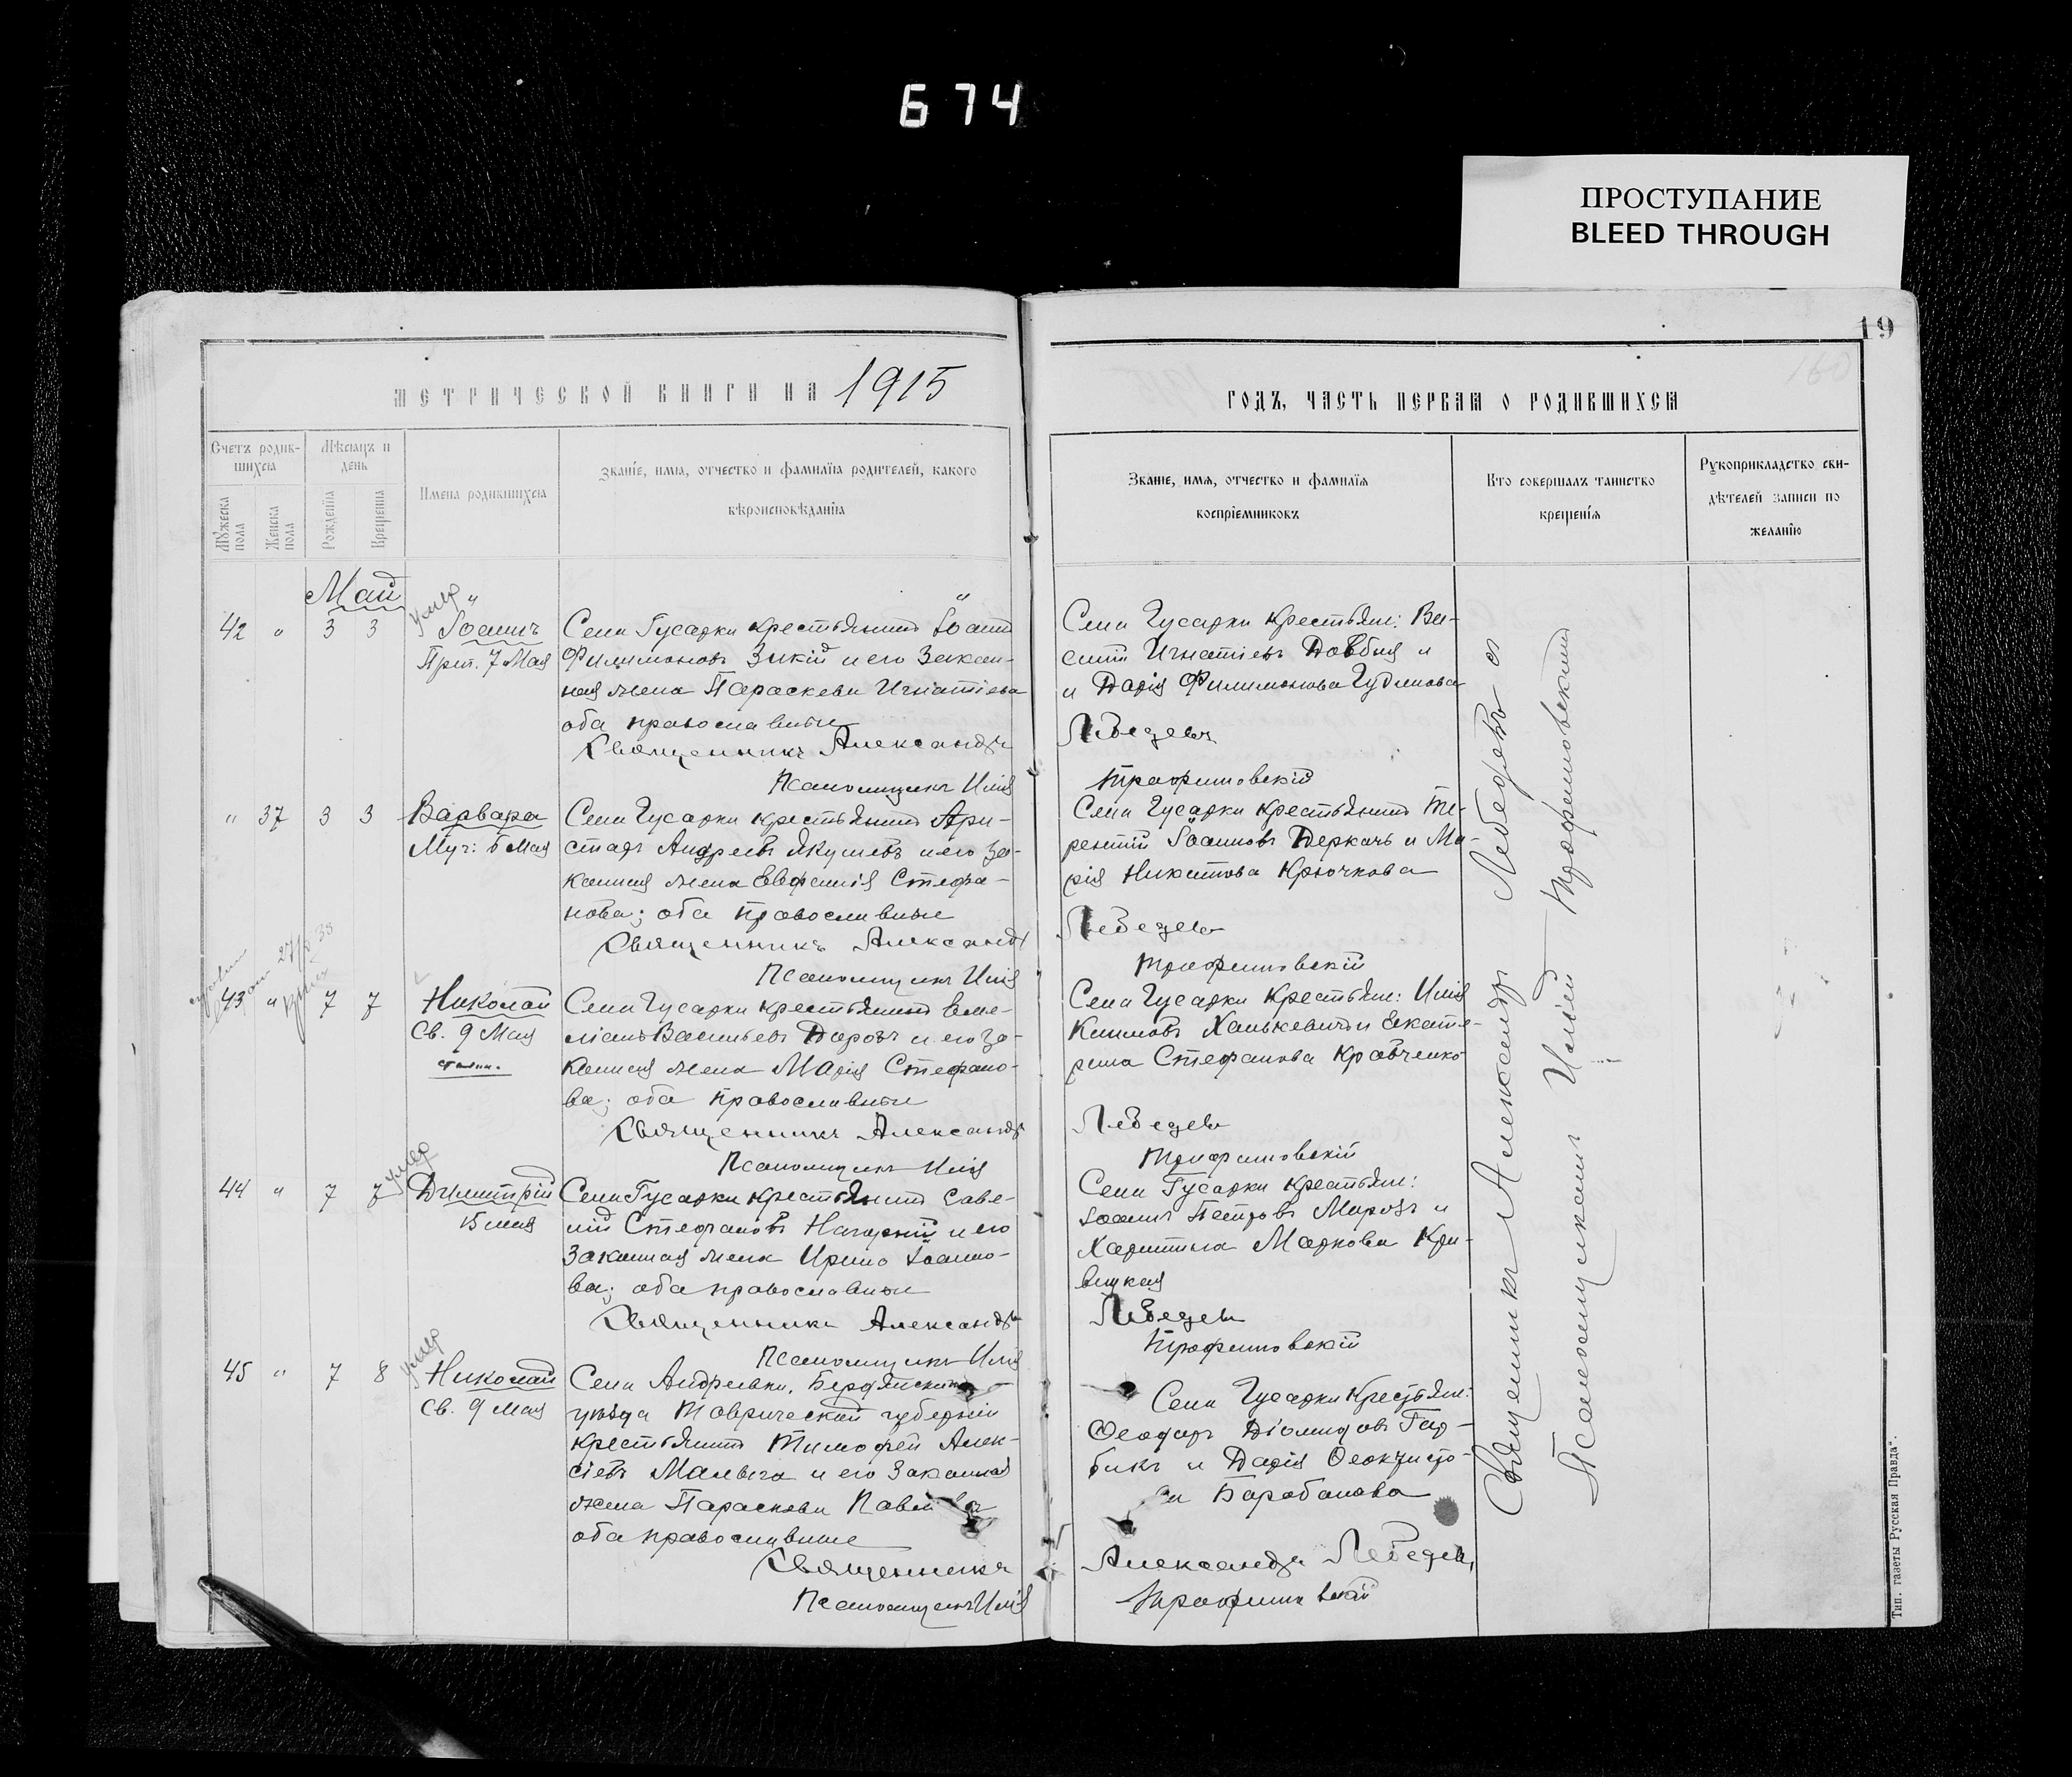 674
ПРОСТУПАНИЕ
BLEED THROUGH
19
МЕТРИЧЕСКОЙ КНИГИ НА 1915
ГОДЪ, ЧАСТЬ ПЕРВАЯ О РОДИВШИХСЯ
Счетъ родив-
шихся
Мѣсяцъ и
день
Мужеска
пола
Женска
пола
Рожденія
Крещенія
Имена родившихся
Званіе, имя, отчество и фамилія родителей, какого
вѣроисповѣданія
Званіе, имя, отчество и фамилія
воспріемниковъ
Кто совершалъ таинство
крещенія
Рукоприкладство сви-
дѣтелей записи по
желанію
Май
42 " 3 3
умер
Іоаннъ
Прп. 7 Мая
Села Гусарки крестьянинъ Іоаннъ
Филимоновъ Зикій и его закон-
ная жена Параскева Игнатіева
оба православные
Священникъ Александръ
Псаломщикъ Илія
Села Гусарки крестьяне: Ва-
силій Игнатіевъ Довбня и
и Дарія Филимонова Гудимова
Лебедевъ
Трофимовскій
" 37 3 3
Варвара
Муч: 6 Мая
Села Гусарки крестьянинъ Ари-
стархъ Андреевъ Якушевъ и его за-
конная жена Евфимія Стефа-
нова; оба православные
Священникъ Александръ
Псаломщикъ Илія
Села Гусарки крестьянинъ Те-
рентій Іоанновъ Деркачъ и Ма-
рія Никитова Крючкова
Лебедевъ
Трофимовскій
43 " 7 7
Николай
Св. 9 Мая
Села Гусарки крестьянинъ Еме-
ліанъ Васильевъ и его за-
конная жена Марія Стефано-
ва; оба православные
Священникъ Александръ
Псаломщикъ Илія
Села Гусарки крестьяне: Илія
Климовъ Ханькевичъ и Екате-
рина Стефанова Кравченко
Лебедевъ
Трофимовскій
44 " 7 7
умер
Димитрій
15 мая
Села Гусарки крестьянинъ Саве-
лій Стефановъ Нагорній и его
законная жена Ирина Іоанно-
ва; оба православные
Священникъ Александръ
Псаломщикъ Илія
Села Гусарки крестьяне:
Іоаннъ Петровъ Морозъ и
Харитина Маркова Кри-
вицкая
Лебедевъ
Трофимовскій
45 " 7 8
умер
Николай
Св. 9 Мая
Села Андреевки, Бердянскаго
уѣзда Таврической губерніи
крестьянинъ Тимофей Алек-
сіевъ Малыга и его законная
жена Параскева Павлова
оба православные
Священникъ
Псаломщикъ Илія
Села Гусарки крестьяне:
Ѳеодоръ Діомидовъ Гар-
бикъ и Дарія Ѳеоктисто-
ва Барабанова
Александръ Лебедевъ
Трофимовскій
Священникъ Александръ Лебедевъ
Псаломщикъ Илія Трофимовскій
Тип. газеты Русская Правда".